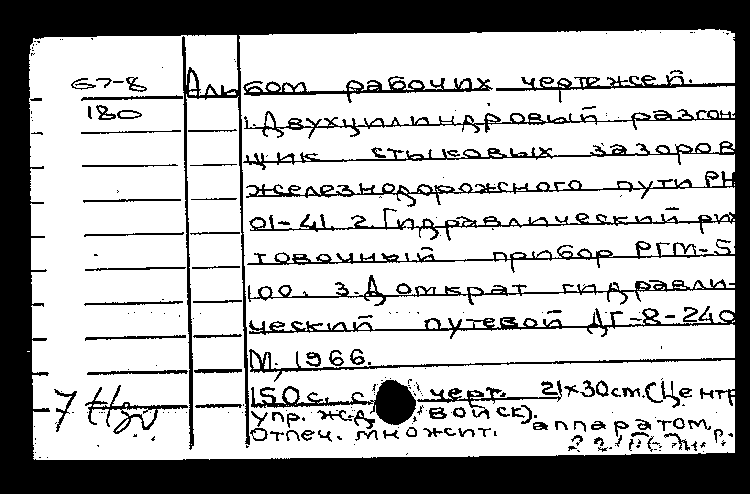 67-8 Альбом рабочих чертежей.
180 1. Двухцилиндровый разгон-
щик стыковых зазоров
железнодорожного пути РН
01-41. 2. Гидравлический рих
товочный прибор РГМ-5
100. 3. Домкрат гидравли-
ческий путевой ДГ-8-240
М., 1966.
150 с. с черт. 21×30cm. (Центр
упр. ж.д. войск).
Отпеч. множит. аппаратом.